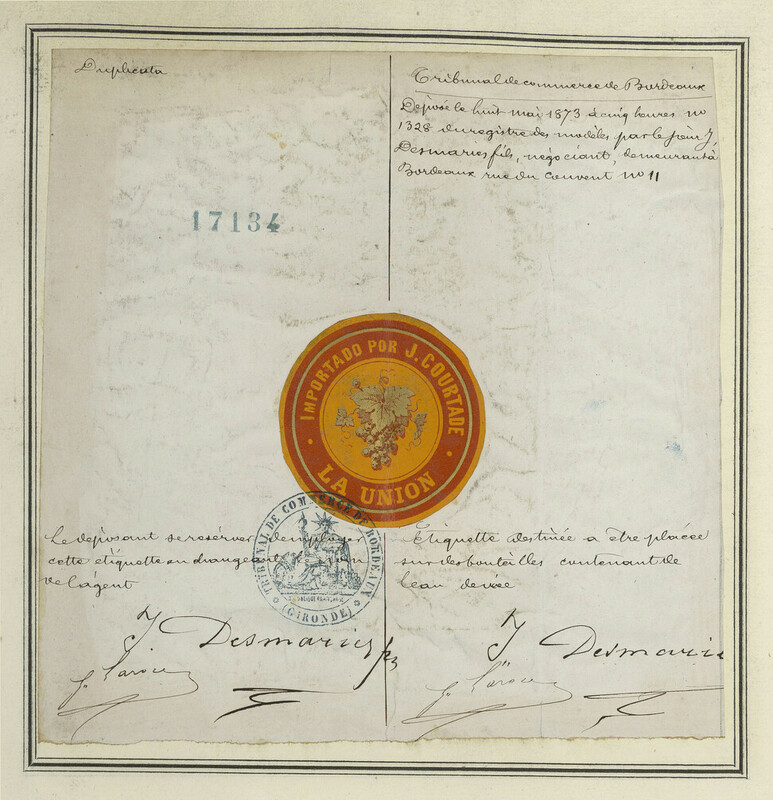 Duplicata
17134
Tribunal de commerce de Bordeaux
Déposé le huit mai 1873 à cinq heures no
1328 du registre des modèles par le sieur J.
Desmaries fils, négociant, demeurant à
Bordeaux rue du couvent no 11
IMPORTADO POR J. COURTADE
LA UNION
Le déposant se réserve d'employer
cette étiquette en changeant le nom
de l'agent
TRIBUNAL DE COMMERCE DE BORDEAUX
(GIRONDE)
Etiquette destinée a être placée
sur des bouteilles contenant de
l'eau de vie
J Desmaries fs
J Desmaries